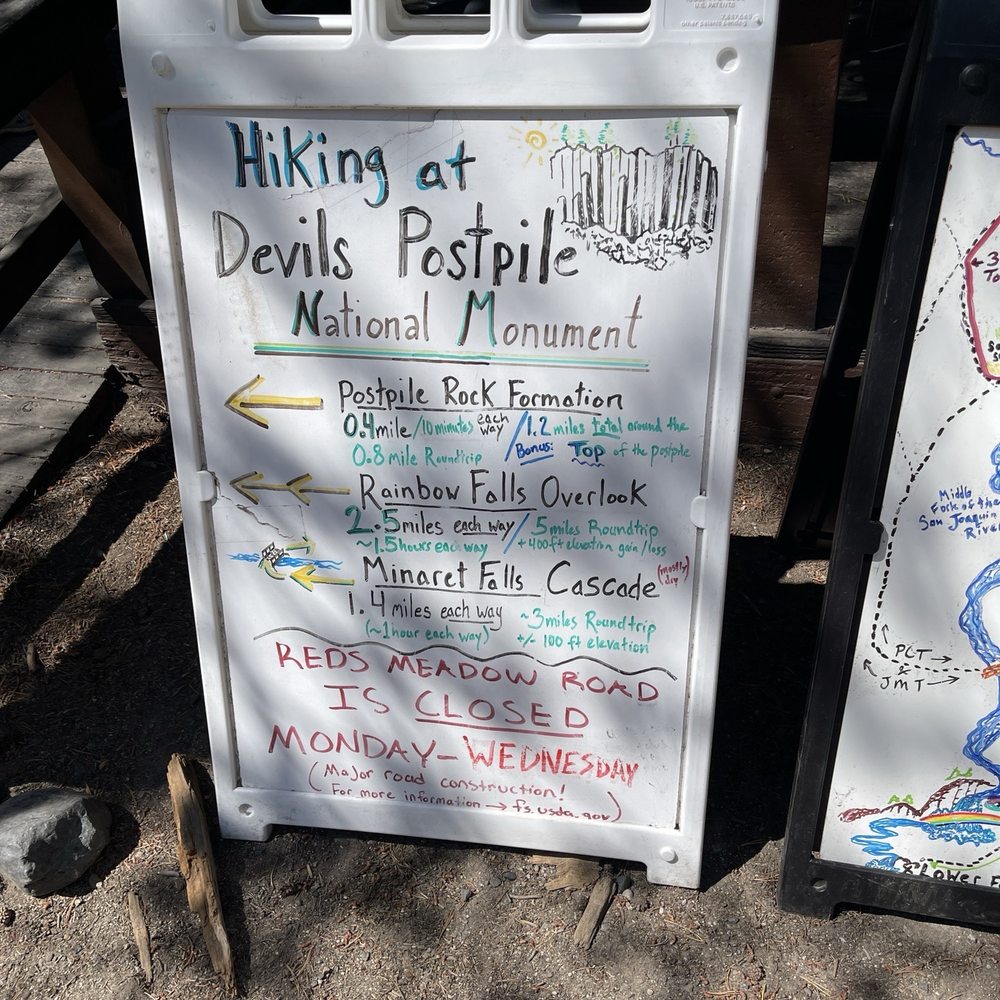 U.S. PATENTS
7,887,649
other patents pending
Hiking at
Devils Postpile
National Monument
Postpile Rock Formation
0.4 mile /10 minutes each way / 1.2 miles total around the
0.8 mile Roundtrip Bonus: Top of the postpile
Rainbow Falls Overlook
2.5 miles each way / 5 miles Roundtrip
~1.5 hours each way + 400ft elevation gain/loss
Minaret Falls Cascade (mostly dry)
1.4 miles each way ~3 miles Roundtrip
(~1 hour each way) +/- 100 ft elevation
REDS MEADOW ROAD
IS CLOSED
MONDAY - WEDNESDAY
(Major road construction!
For more information → fs.usda.gov)
3
To
Middle
Fork of the
San Joaquin
River
PCT →
&
JMT →
Lower F